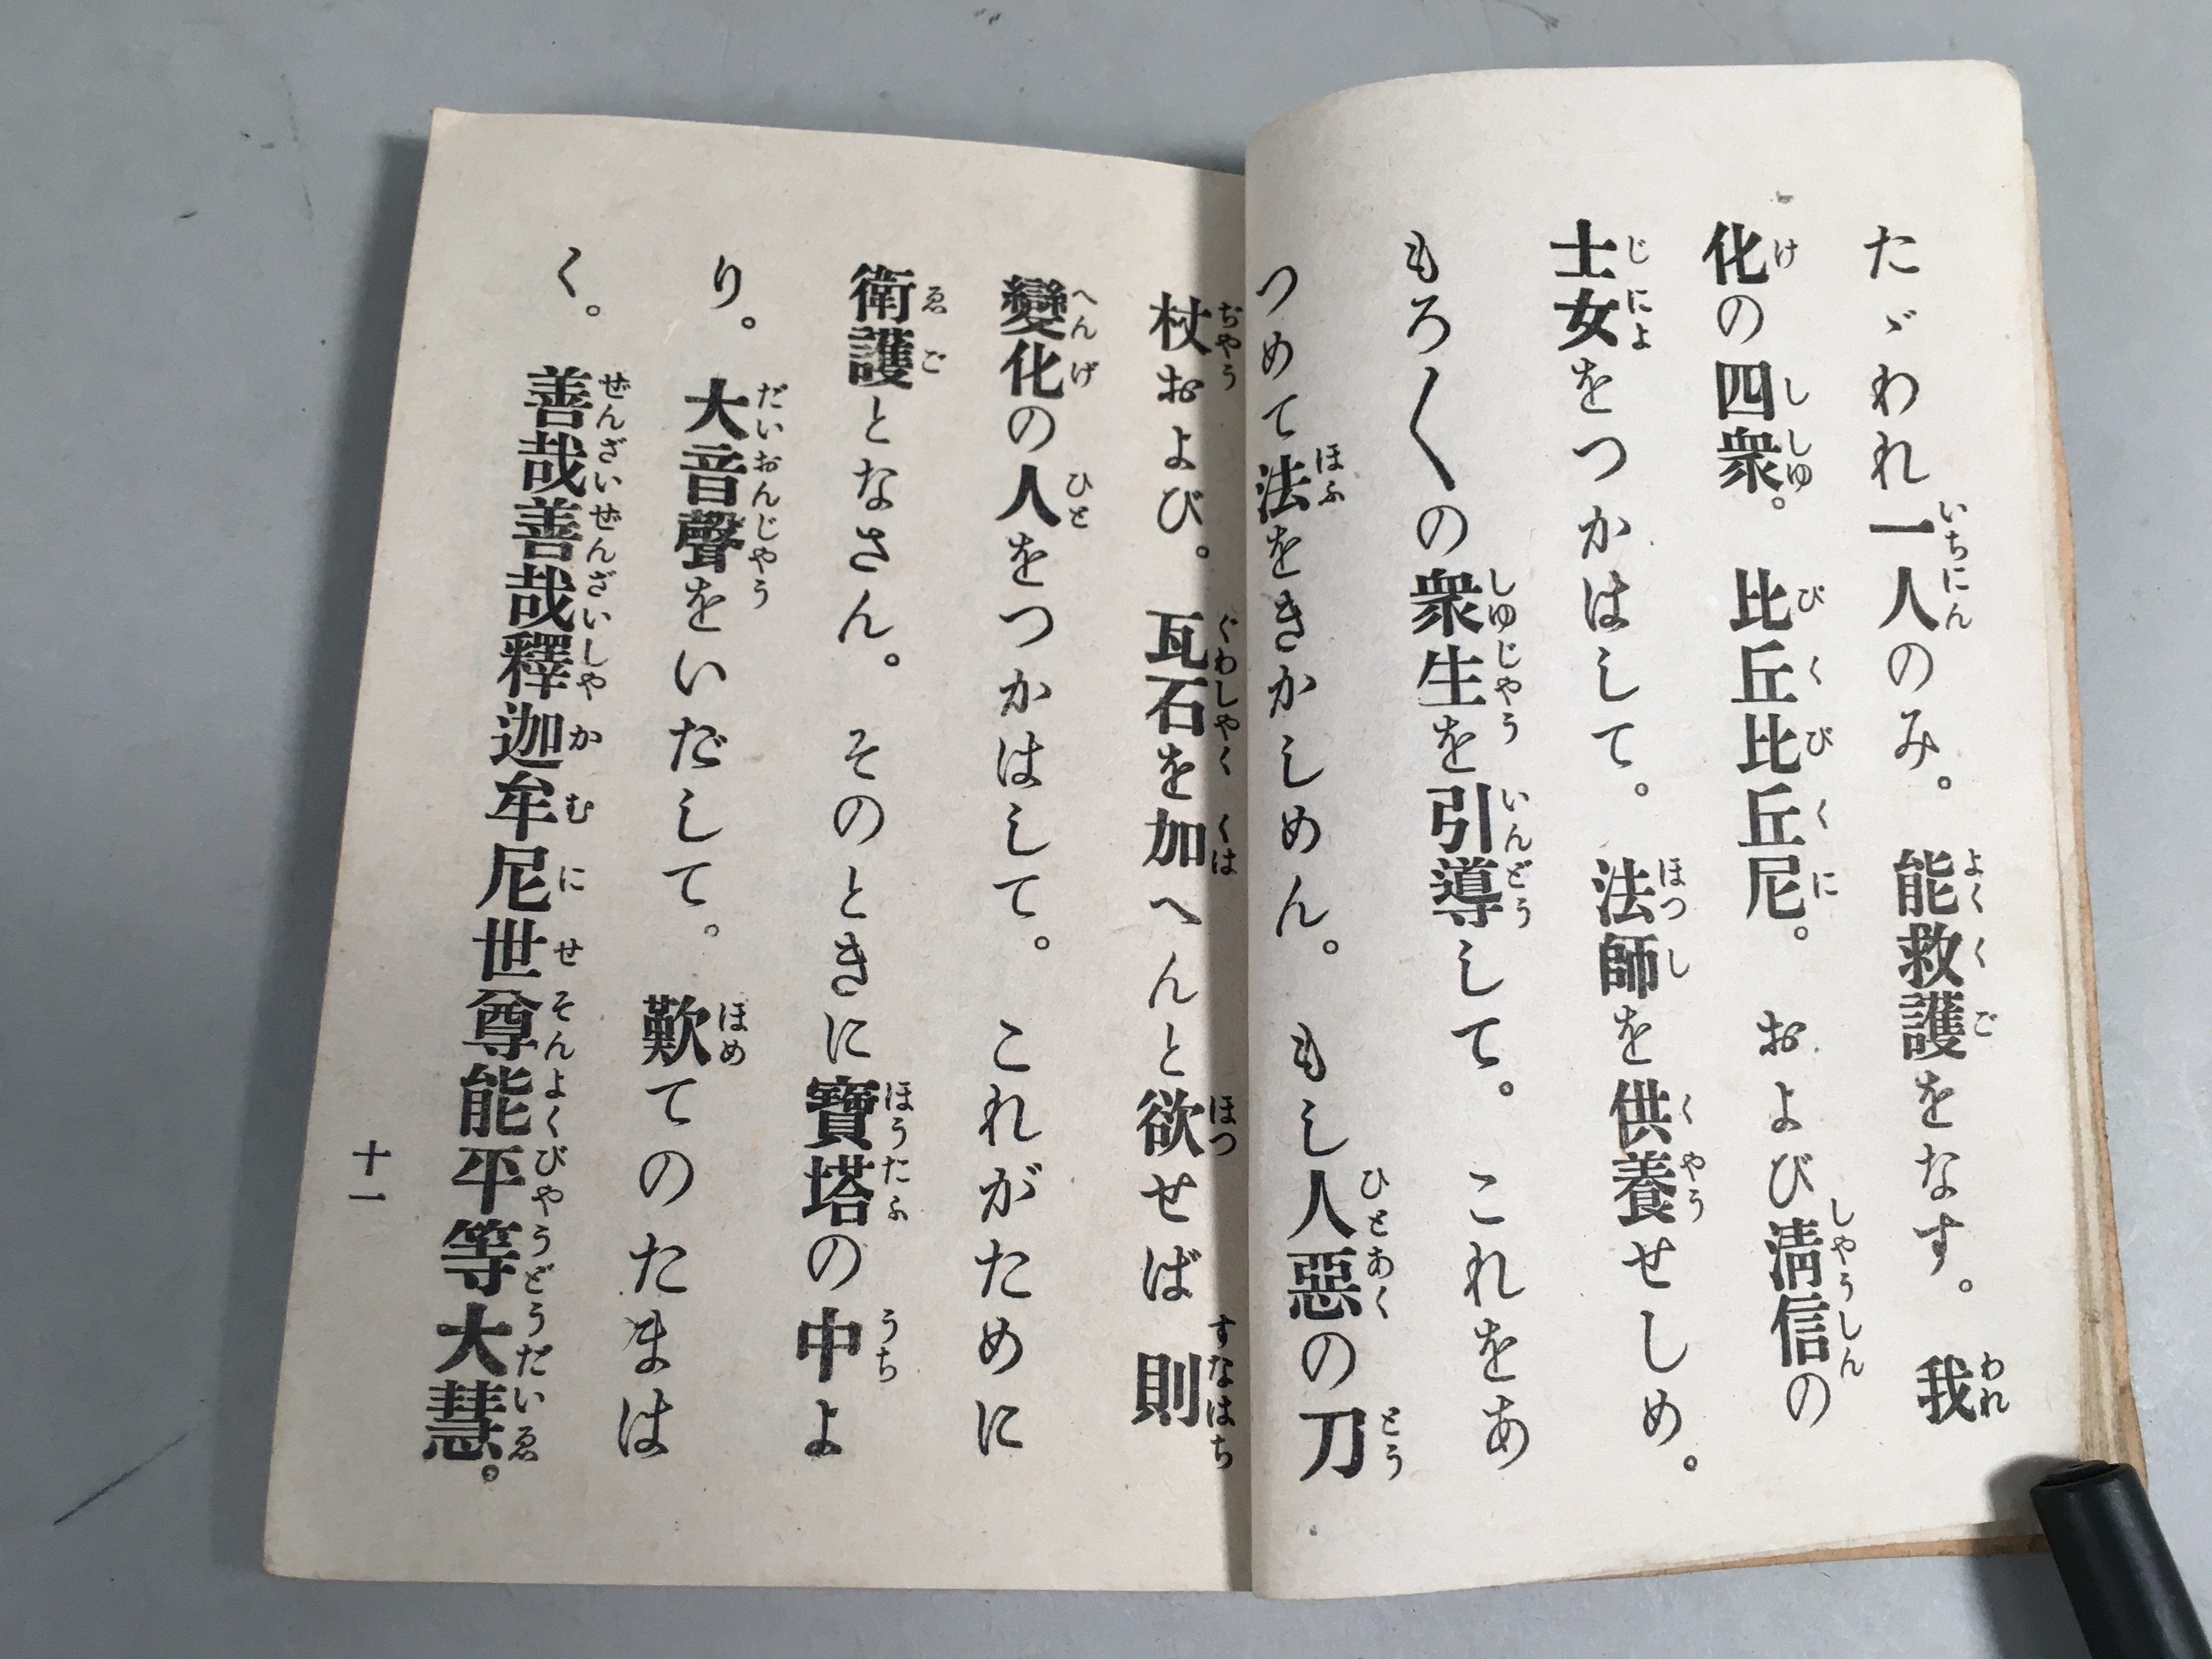 たゞわれ一人のみ。能救護をなす。我
化の四衆。比丘比丘尼。および清信の
士女をつかはして。法師を供養せしめ。
もろ〳〵の衆生を引導して。これをあ
つめて法をきかしめん。もし人惡の刀
杖および。瓦石を加へんと欲せば則
變化の人をつかはして。これがために
衛護となさん。そのときに寶塔の中よ
り。大音聲をいだして。歎てのたまは
く。善哉善哉釋迦牟尼世尊能平等大慧。
十一